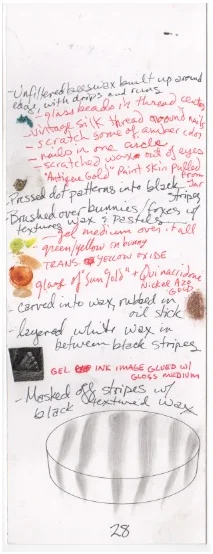 -Unfiltered beeswax built up around
edge, with drips and runs
-glass beads in thread center
-vintage silk thread around nails
-scratch some of amber
-nails in one circle
-scratched wax out of eyes
-"Antique Gold" Paint skin pulled
from
Jar
-Pressed dot patterns into black
stripes
-Brushed over bunnies/foxes w/
textured wax & pastels
gel medium over all
green/yellow on bunny
TRANS. YELLOW OXIDE
glaze of "Sun Gold" + Quinacridone
Nickel Azo
Gold
-Carved into wax, rubbed in
oil stick
-layered white wax in
between black stripes
GEL INK IMAGE GLUED W/
GLOSS MEDIUM
-Masked off stripes w/
black textured wax
28